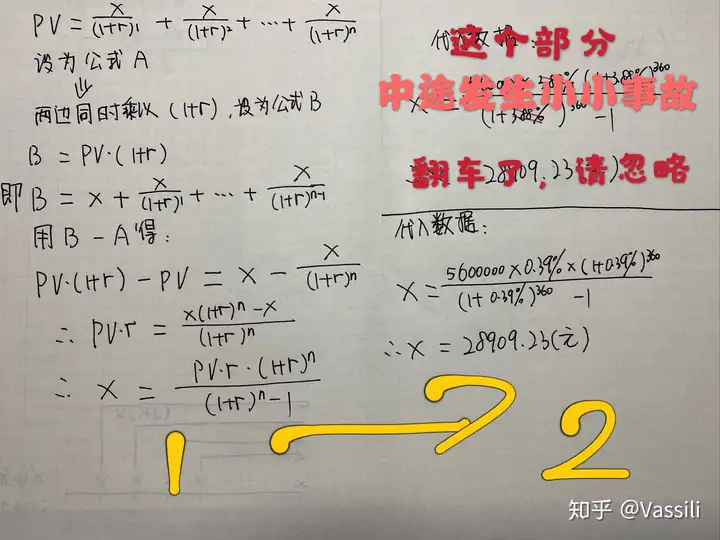 PV = x/(1+r)¹ + x/(1+r)² + … + x/(1+r)ⁿ
设为公式 A
⇓
两边同时乘以 (1+r), 设为公式 B
B = PV·(1+r)
即 B = x + x/(1+r)¹ + … + x/(1+r)ⁿ⁻¹
用 B - A 得:
PV·(1+r) - PV = x - x/(1+r)ⁿ
∴ PV·r = x(1+r)ⁿ - x/(1+r)ⁿ
∴ x = PV·r·(1+r)ⁿ/(1+r)ⁿ - 1
1
这个部分
中途发生小小事故
翻车了,请忽略
28909.23
代入数据:
x = 5600000 × 0.39% × (1+0.39%)³⁶⁰/(1+0.39%)³⁶⁰ - 1
∴ x = 28909.23(元)
2
知乎 @Vassili